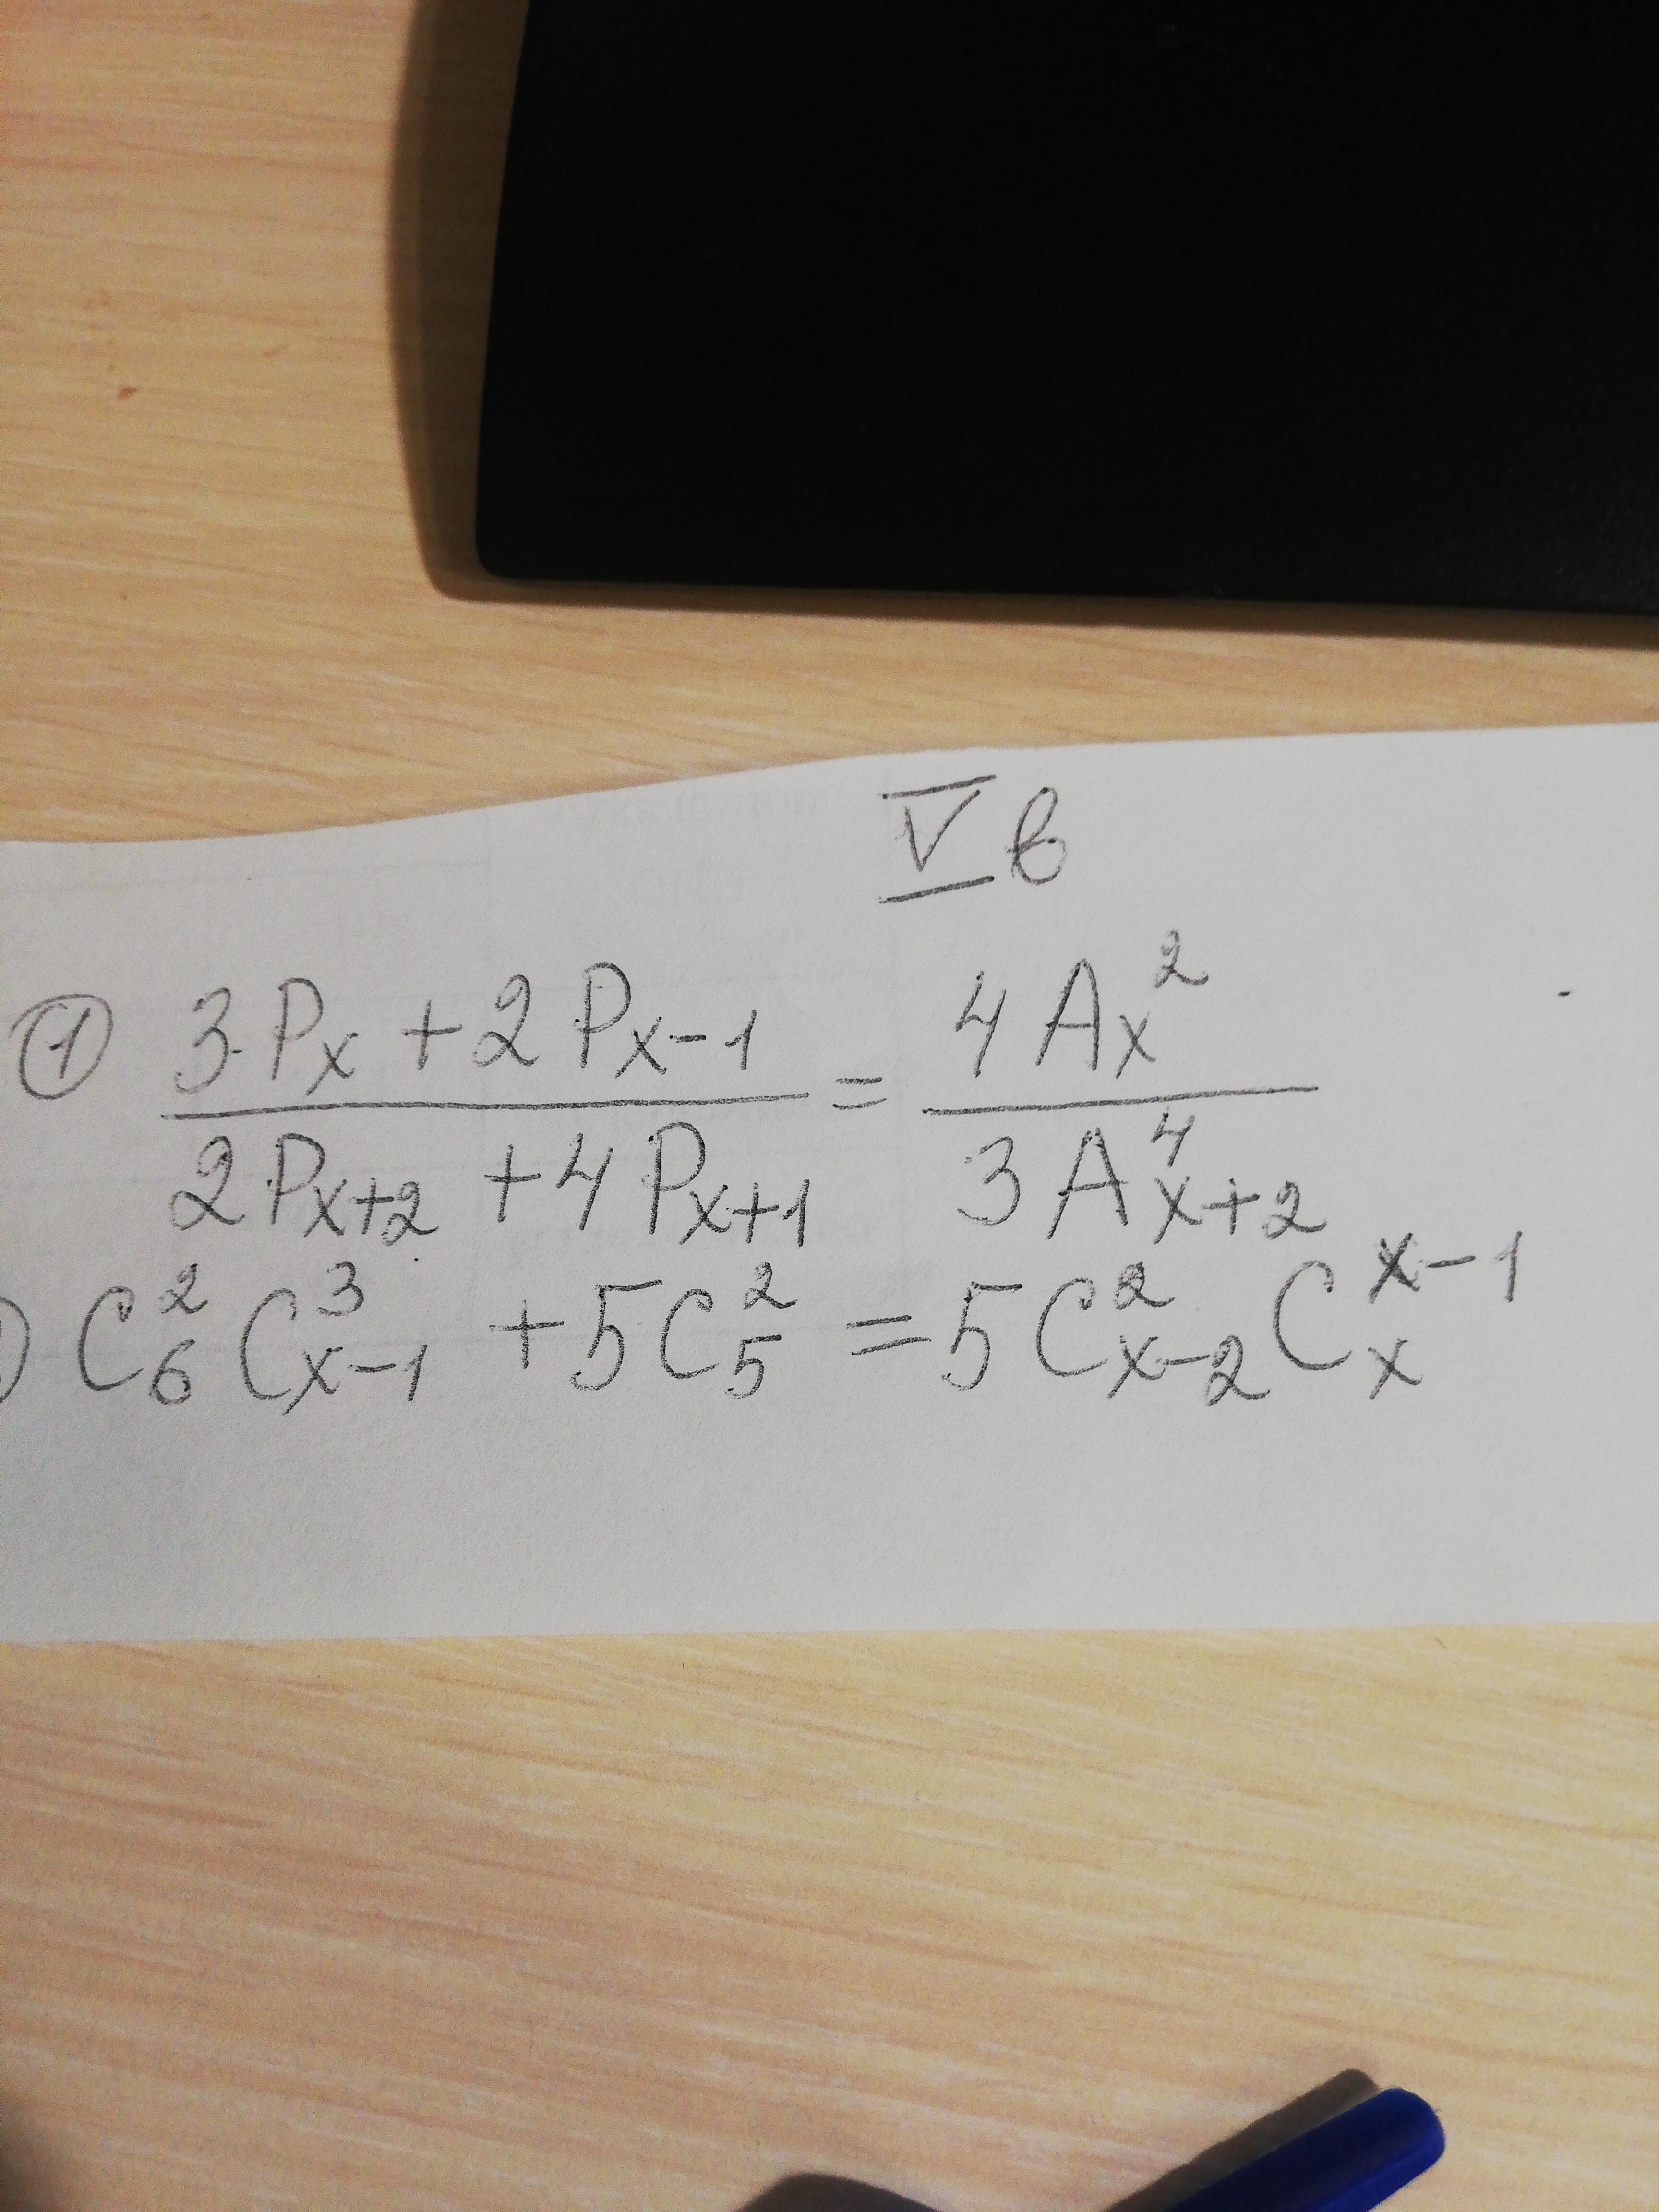 V в
① (3Pₓ + 2Pₓ₋₁)/(2Pₓ₊₂ + 4Pₓ₊₁) = 4Aₓ²/3Aₓ₊₂⁴
) C₆² Cₓ₋₁³ + 5C₅² = 5Cₓ₋₂² Cₓˣ⁻¹